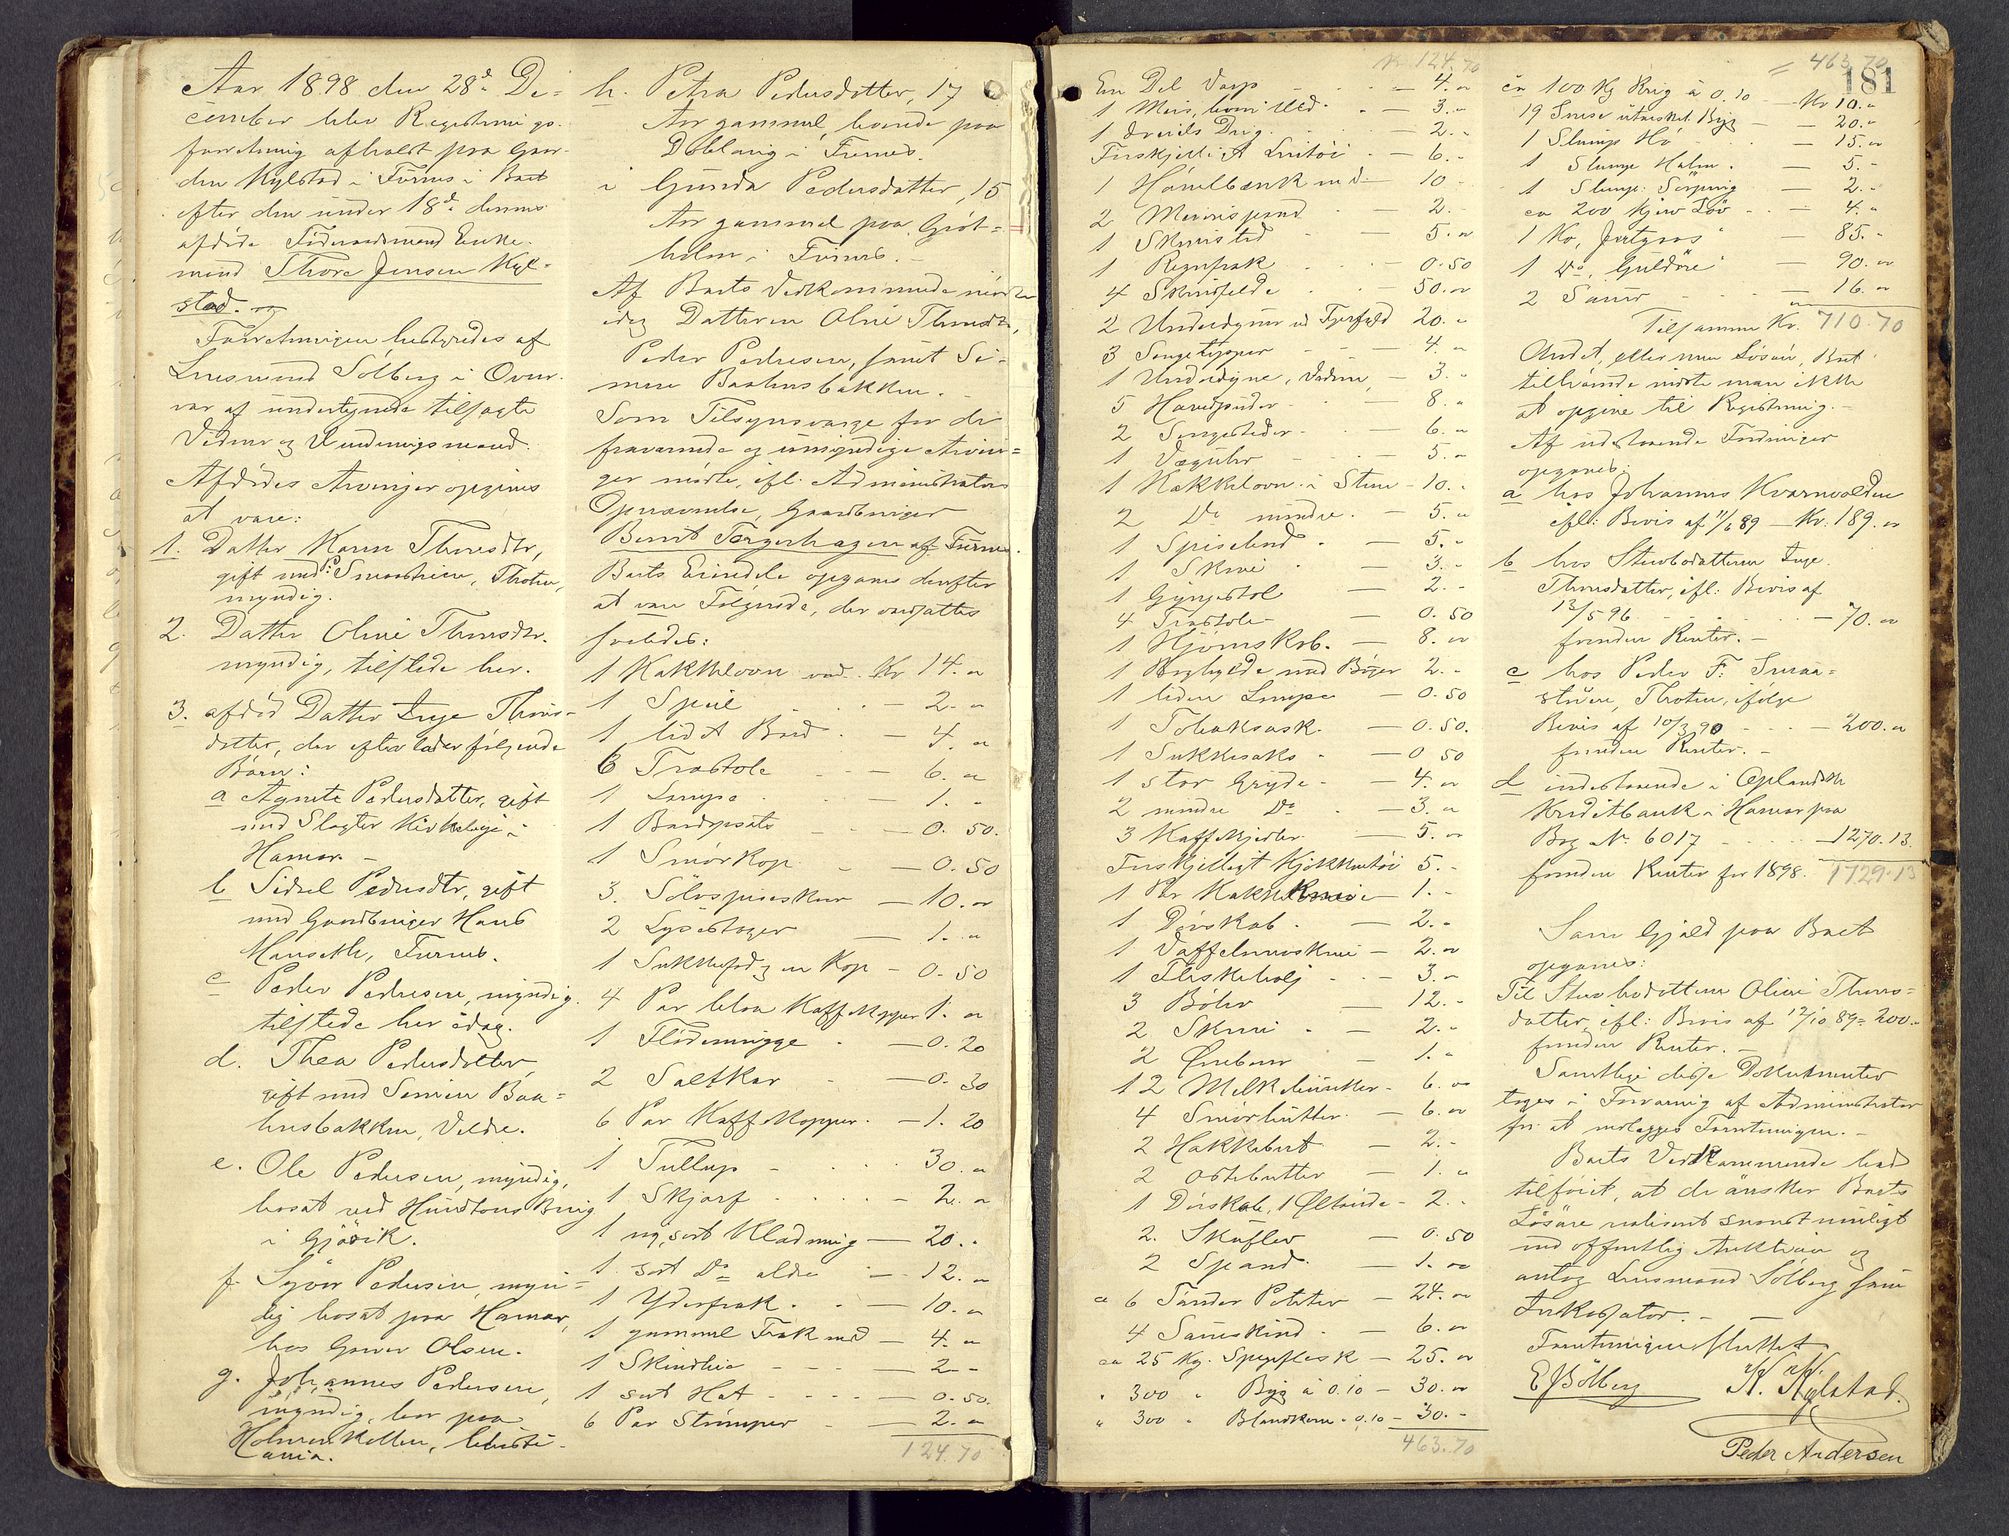 Aar 1898 den 28d. De-
cember blev Registrerings-
forretning afholdt paa Gaar-
den Kylstad i Furnes i Boet
efter den under 18d. dennes
afdøde Føderaadsmand Enke-
mand Thore Jensen Kyl-
stad.
Forretningen bestyredes af
Lensmand Sølberg i Over-
vær af undertegnede tilsagte
Vidner og Vurderingsmænd.
Afdødes Arvinger opgives
at være:
1. Datter Karen Thoresdtr,
gift med Smeshien, Thoten,
myndig.
2. Datter Oline Thoresdtr.
myndig, tilstede her.
3. afdød Datter Inge Thores-
datter, der efterlader følgende
Børn:
a Agnete Pedersdatter, gift
med Slagter Kirkeleje i
Hamar. -
b Sidsel Pedersdtr, gift
med Gaardbruger Hans
Hanseth, Furnes.
c Peder Pedersen, myndig,
tilstede her idag.
d. Thea Pedersdatter,
gift med Simen Baa-
husbakken, Veldre.
e. Ole Pedersen, myndig,
bosat ved Hundtons Brug
i Gjøvik.
f. Syver Pedersen, myn-
dig bosat paa Hamar,
hos Garver Olsen.
g. Johannes Pedersen,
myndig, bor paa
Holmenkollen, Christi-
ania.
h. Petra Pedersdatter, 17
Aar gammel, boende paa
Doblaug i Furnes.
i Gunda Pedersdatter, 15
Aar gammel paa Grøt-
holm i Furnes. -
Af Boets Vedkommende mødte
idag Datteren Oline Thoresdtr,
Peder Pedersen, samt Si-
men Baahusbakken. -
Som Tilsynsværge for de
fraværende og umyndige Arvin-
ger mødte, ifl. Administrators
Opnævnelse, Gaardbruger
Bernt Torgerhagen af Furnes.
Boets Eiendele opgaves derefter
at være Følgende, der ansattes
saaledes:
1 Kakkelovn ved. Kr 14. "
1 Speil - 2. "
1 lidet Bord - 4. "
6 Træstole - 6. "
1 Lampe - 1. "
1 Bordopsats - 0. 50.
1 Smørkop - 0. 50
3. Sølvspiseskeer - 10. "
2 Lysestager - 1. "
1 Sukkerfad og en Kop - 0. 50
4 Par blaa Kaffekopper 1. "
1 Flødemugge - 0. 20
2 Saltkar - 0. 30
6 Par Kaffekopper. - 1. 20
1 Tullup - 30. "
1 Skjærf - 2. "
1 ny, sort Klædning - 20. "
1 sort Do ældre - 12. "
1 Yderfrak. - 10. "
1 gammel Frak med - 4. "
1 Skindhue - 2 -
1 sort Hat - 0. 50.
6 Par Strømper - 2. "
124. 70
Kr. 124. 70
En Del - 4. "
1 Meis, hvori Uld. - 3. "
1 Dreiels Dug. - 2. "
Forskjelligt Lintøi - 6. -
1 Høvelbænk med - 10 -
2 - 2. -
1 - 5. "
1 Regnfrak - 0. 50
4 Skindfelde - 50. "
2 Underdyner m Fjærfyld 20. "
3 Sengetepper - 4. "
1 Underdyne, Vadmel, - 3. -
5 Hovedpuder - 8. "
2 Sengesteder - 6. "
1 Væguhr - 5. "
1 Kakkelovn i Stuen - 10. "
2 Do mindre. - 5. "
1 Spisebord - 5. -
1 - 3. -
1 Gyngestol - 2. -
4 Træstole - 0. 50
1 Hjørneskab. - 8. "
1 Boghylde med Bøger 2. -
1 liden Lampe - 0. 50
1 Tobaksask. - 0. 50.
1 Sukkersaks - 0 50
1 stor Gryde - 4. "
2 mindre Do - 3. "
3 Kaffekjedler. - 5. "
Forskjelligt Kjøkkentøi 5. -
1 Par - 1. -
1 - 2. -
1 Vaffel - 2. "
1 - 3. "
3 Bøler - 12. -
2 - 2. -
2 - 1. "
12 Melkebunker - 6. "
4 Smørbutter. - 6. "
2 Hakkebret - 2. -
2 Ostebutter - 1. "
1 , 1 Øltønde - 2. -
2. Skufler - 0. 50
2 Spand. - 1. "
ca 6 Tønder Poteter - 24. "
4 Saueskind. - 6. "
ca 25 Kg. Spegeflesk - 25. "
" 300 " Byg á 0.10 - 30. "
" 300 " Blandkorn - 0,10 - 30. -
463. 70
= 463. 70
181
ca 100 Kg Rug á 0.10 - Kr 10. "
19 Snese utærsket Byg - 20. "
1 Slump Hø - 15. "
1 Slump Halm. - 5. -
1 Slump - 2. -
ca 200 Kjerv Løv - 4. "
1 Ko, - 85. -
1 Do, - 90. "
2 Sauer - 16. "
Tilsammen Kr. 710. 70
Andet, eller mere Løsøre, Boet
tilhørende vidste man ikke
at opgive til Registrering. -
Af udestaaende Fordringer
opgaves:
a hos Johannes Kvarnvolden
ifl: Bevis af 11/6 89 - Kr. 189. "
b hos Sterbodatteren Inge
Thoresdatter, ifl: Bevis af
13/5 96 - 70. "
foruden Renter. -
c hos Peder F. Smaa-
stuen, Thoten, ifølge
Bevis af 10/3 90 - 200. "
foruden Renter. -
d indestaaende i Oplandske
Kreditbank i Hamar paa
Bog No. 6017 - 1270. 13.
foruden Renter for 1898. 1729. 13
Som Gjæld paa Boet
opgaves:
Til Sterbodatteren Oline Thores-
datter, ifl: Bevis af 12/10 89 = 200. -
foruden Renter. -
Samtlige disse Dokumenter
toges i Forvaring af Administrator
for at vedlægges Forretningen. -
Boets Vedkommende bad
tilføiet, at de ønsker Boets
Løsøre realiseret snarest muligt
ved offentlig Auktion og
antog Lensmand Sølberg som
Inkassator. -
Forretningen sluttet.
E Sølberg K. Kylstad.
Peder Andersen